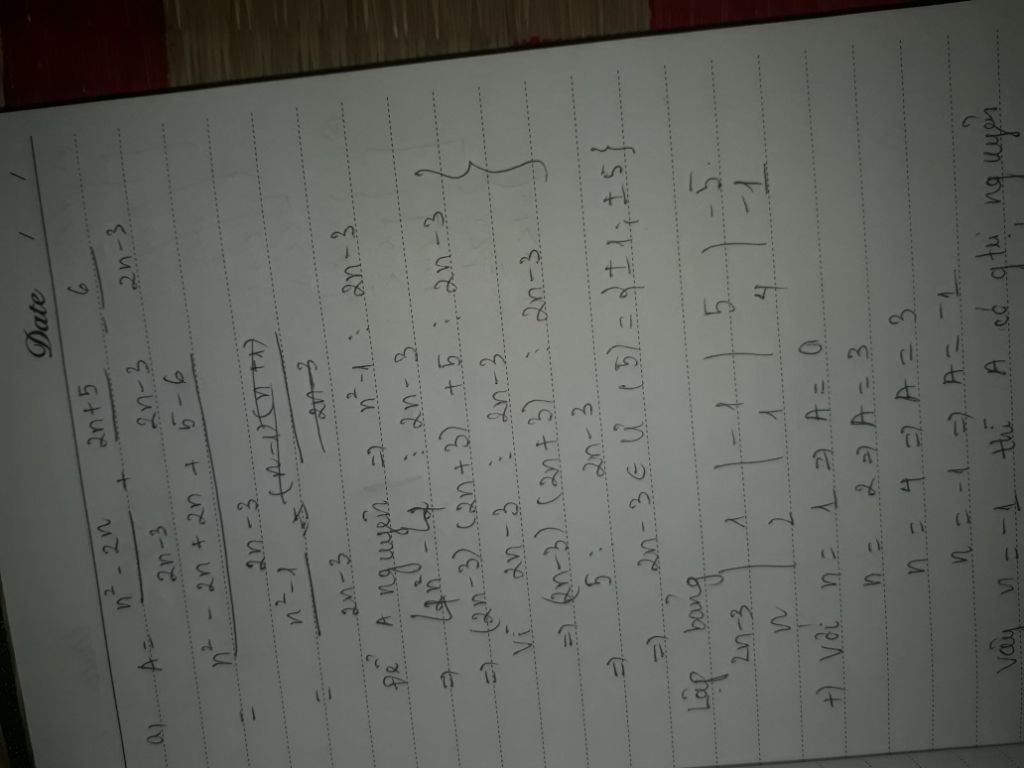 Date / /
a) A = n² - 2n / 2n-3 + 2n+5 / 2n-3 - 6 / 2n-3
= n² - 2n + 2n + 5 - 6 / 2n-3
= n² - 1 / 2n-3
Để A nguyên => n²-1 ⋮ 2n-3
=> 4n² - 4 ⋮ 2n-3
=> (2n-3)(2n+3) + 5 ⋮ 2n-3 }
Vì 2n-3 ⋮ 2n-3
=> (2n-3)(2n+3) ⋮ 2n-3 }
=> 5 ⋮ 2n-3
=> 2n-3 ∈ Ư(5) = {±1; ±5}
Lập bảng
2n-3 | 1 | -1 | 5 | -5
n | 2 | 1 | 4 | -1
+) Với n = 1 => A = 0
n = 2 => A = 3
n = 4 => A = 3
n = -1 => A = -1
Vậy n = -1 thì A có gtri nguyên